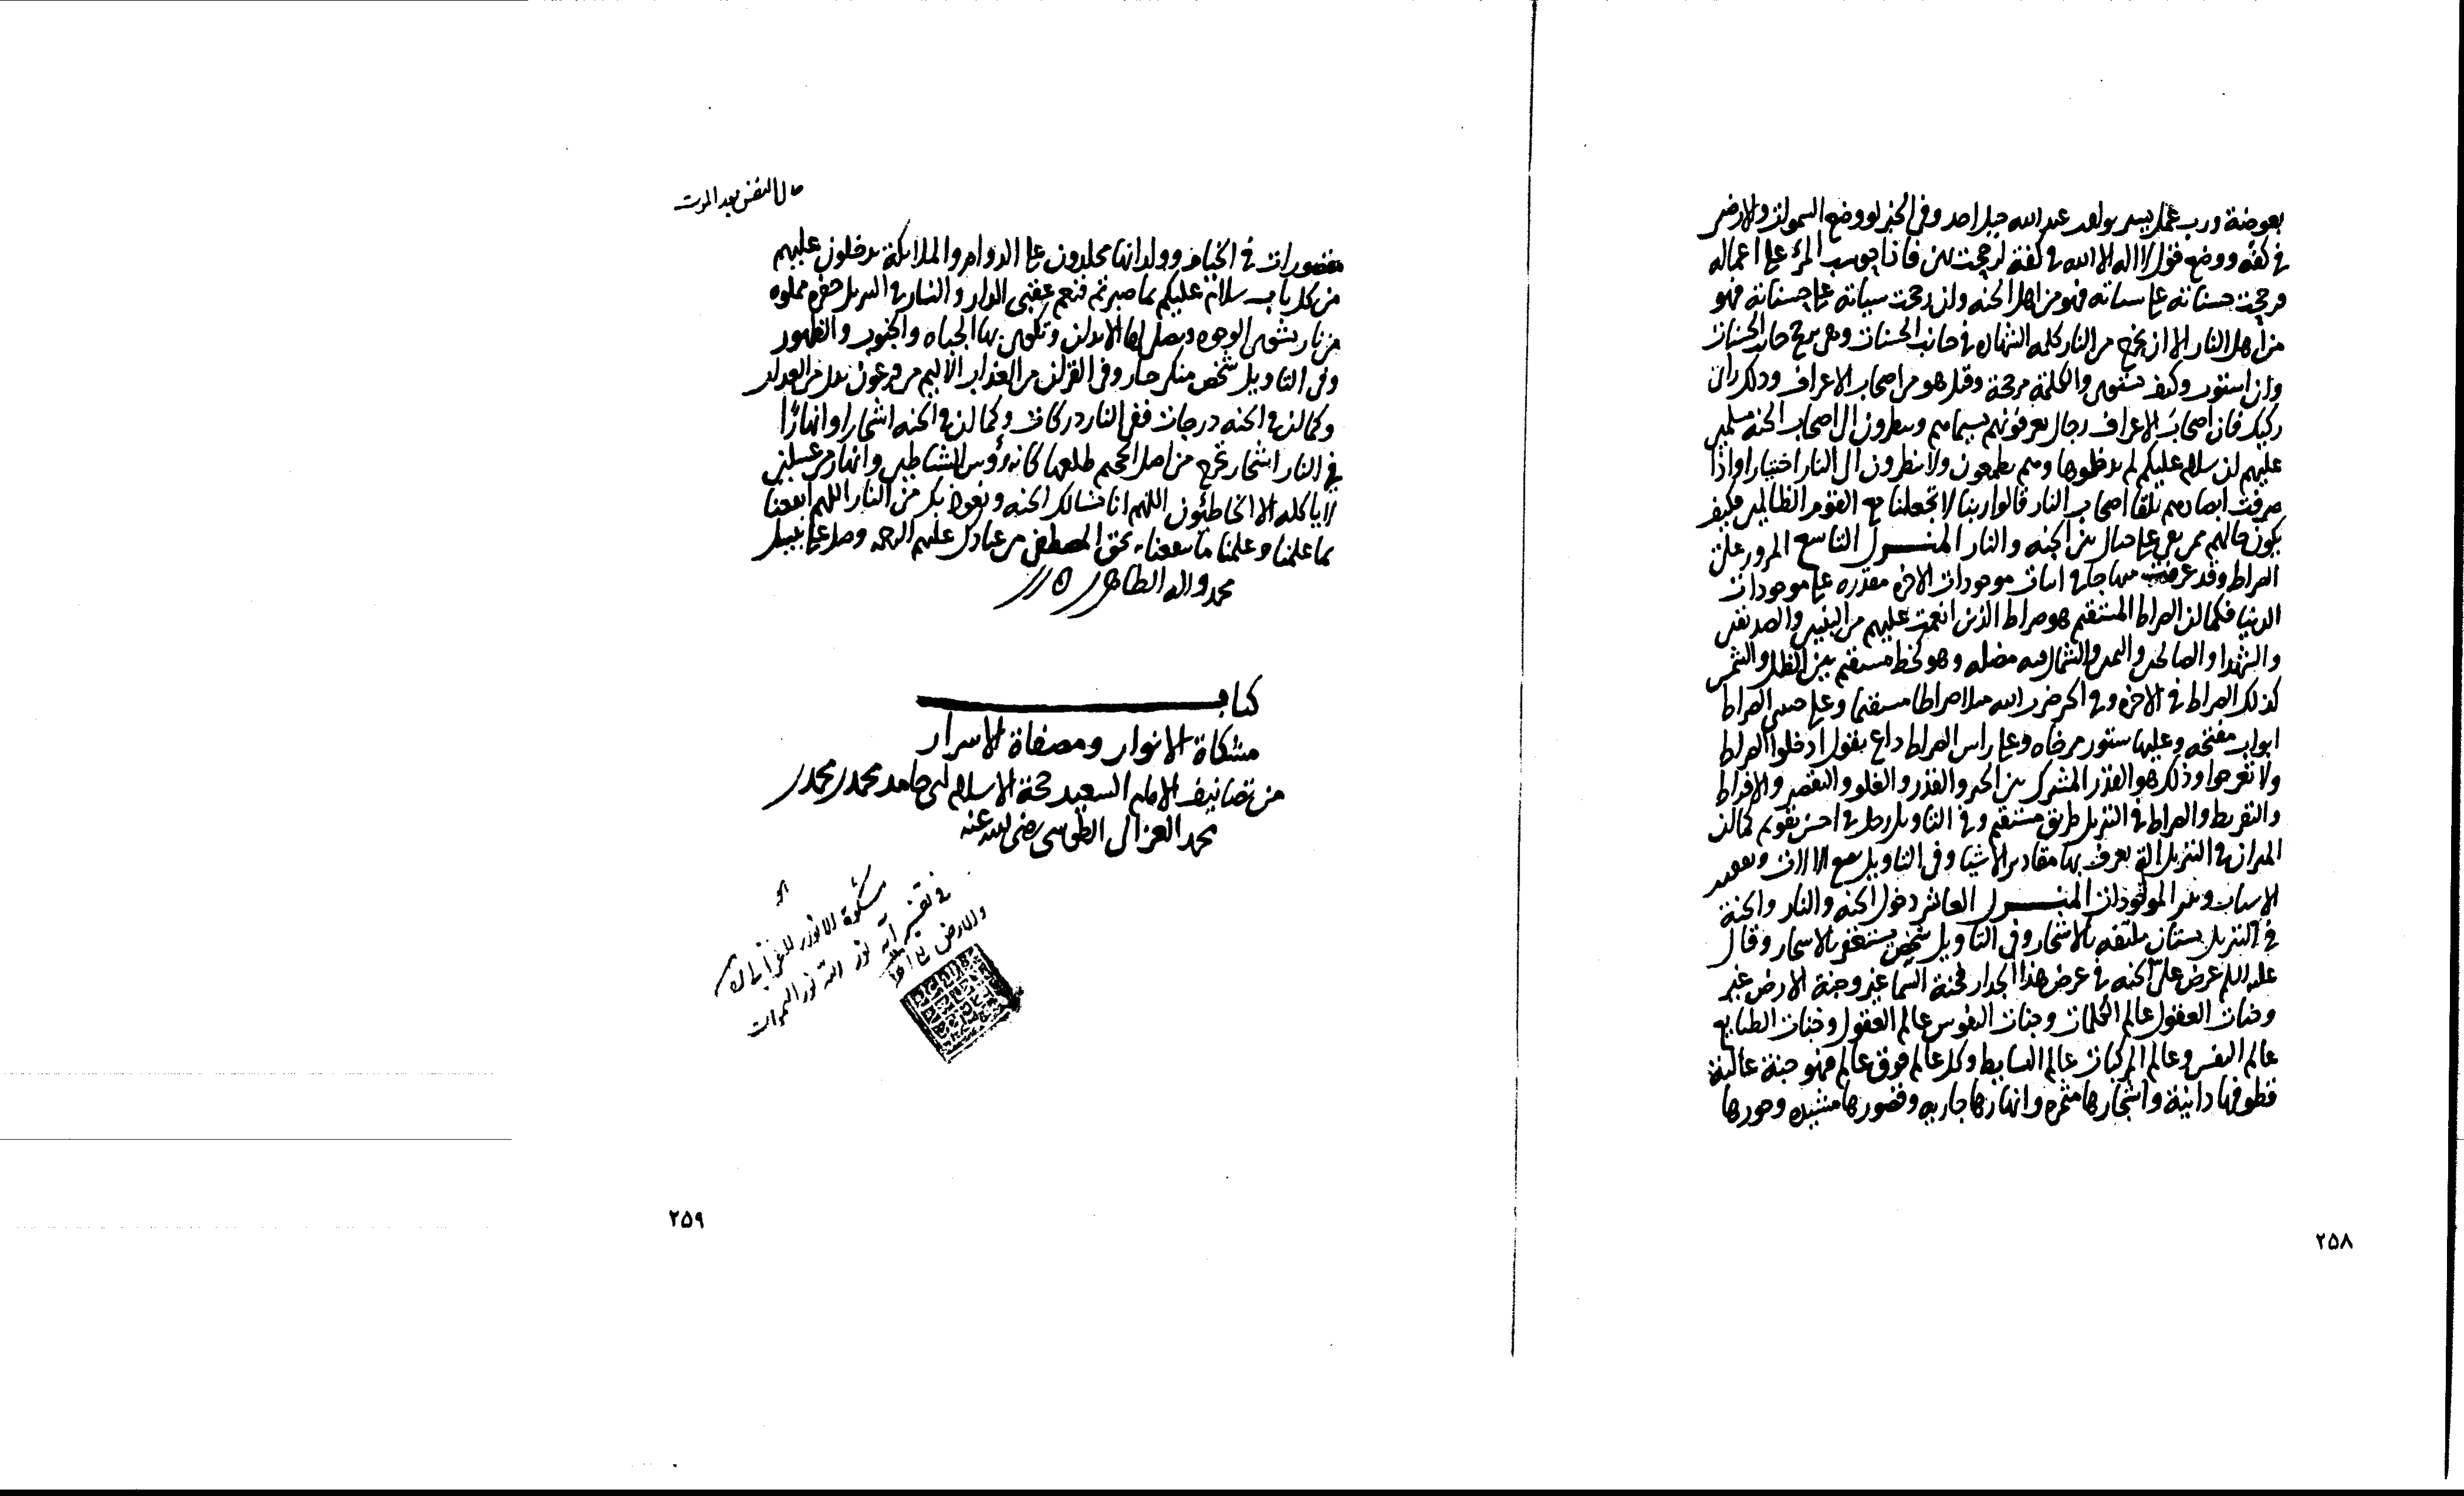 بعوضة ورب عمل يسير يوازن عند الله جبل احد وفي الخبر لو وضع السموات والارض
في كفة ووضع قول لا اله الا الله في كفة لرجحت بهن فاذا حوسب المرء على اعماله
فرجحت حسناته على سياته فهو من اهل الجنة وان رجحت سياته على حسناته فهو
من اهل النار الا ان يخرج من النار كلمه الشهاده في جانب الحسنات وهي ترجح جانب الحسنات
وان استوت وكيف تستوي والكلمة مرجحة وقيل هو من اصحاب الاعراف وذلك راى
ركيك فان اصحاب الاعراف رجال يعرفونهم بسيماهم وينظرون الى اصحاب الجنه مسلمين
عليهم ان سلام عليكم لم يدخلوها وهم يطمعون ولا ينظرون الى النار اختيارا واذا
صرفت ابصارهم تلقا اصحاب النار قالوا ربنا لا تجعلنا مع القوم الظالمين فكيف
يكون حالهم ممن بقي على حيال بين الجنه والنار المنزل التاسع المرور على
الصراط وقد عرضت منهاجك في اثبات موجودات الاخره مقدره على موجودات
الدنيا فكما ان الصراط المستقيم هو صراط الذين انعمت عليهم من النبيين والصديقين
والشهدا والصالحين واليمين والشمال فيه مضله وهو كخط مستقيم بين الظل والشمس
كذلك الصراط في الاخره وفي الخبر ضرب الله مثلا صراطا مستقيما وعلى جنبتي الصراط
ابواب مفتحه وعليها ستور مرخاه وعلى راس الصراط داع يقول ادخلوا الصراط
ولا تعرجوا وذلك هو القدر المشترك بين الجبر والقدر والغلو والتقصير والافراط
والتفريط والصراط في التنزيل طريق مستقيم وفي التاويل رجل في احسن تقويم كما ان
الميزان في التنزيل التي يعرف بها مقادير الاشيا وفي التاويل
الاسباب المولودات المنزل العاشر دخول الجنه والنار والجنة
في التنزيل بستان ملتفه بالاشجار وفي التاويل شخص يستغفر بالاسحار وقال
عليه السلم عرض على الجنه في عرض هذا الجدار فجنة السما غير وجنة الارض غير
وجنات العقول عالم الكلمات وجنات النفوس عالم العقول وجنات الطبايع
عالم النفس وعالم المركبات عالم البسايط وكل عالم فوق عالم فهو جنة عالية
قطوفها دانية واشجارها مثمره وانهارها جاريه وقصورها مشيده وحورها
٢٥٨
حال النفس بعد الموت
مقصورات في الخيام وولدانها مخلدون على الدوام والملائكة يدخلون عليهم
من كل باب سلام عليكم بما صبرتم فنعم عقبى الدار والنار في التنزيل حفره مملوه
من نار يشوى الوجوه ويصلى بها الابدان وتكوى بها الجباه والجنوب والظهور
وفي التاويل شخص منكر جبار وفي القران من العذاب الاليم من فرعون بدل من العذاب
وكما ان في الجنه درجات ففي النار دركات وكما ان في الجنه اشجارا وانهارًا
في النار اشجار تخرج من اصل الجحيم طلعها كانه رؤوس الشياطين وانهار من غسلين
لا ياكله الا الخاطئون اللهم انا نسالك الجنه ونعوذ بك من النار اللهم انفعنا
بما علمنا وعلمنا ما ينفعنا بحق المصطفين من عبادك عليهم الرحمة وصل على نبيك
محمد واله الطاهرين
كتاب
مشكاة الانوار ومصفاة الاسرار
من تصانيف الامام السعيد حجة الاسلام ابي حامد محمد بن محمد بن
محمد الغزالي الطوسي رضي الله عنه
مشكوة الانوار للغزالي
في تفسير آية نور الله نور السموات
والارض
٢٥٩